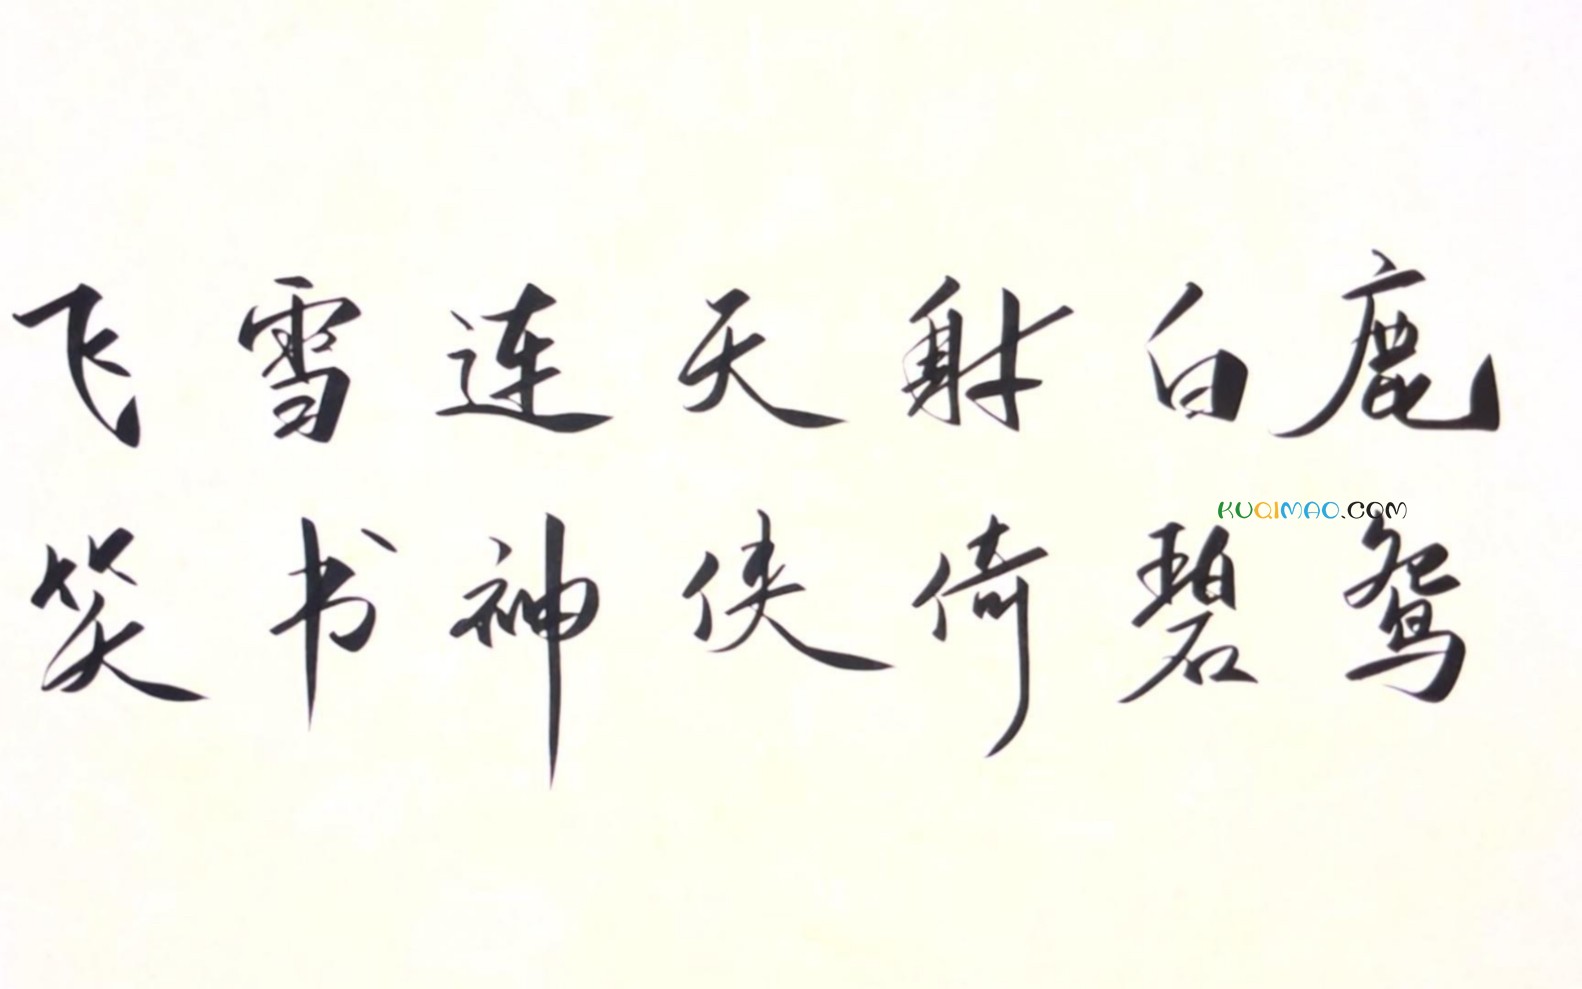 飞雪连天射白鹿
KUQIMAO.COM
笑书神侠倚碧鸳